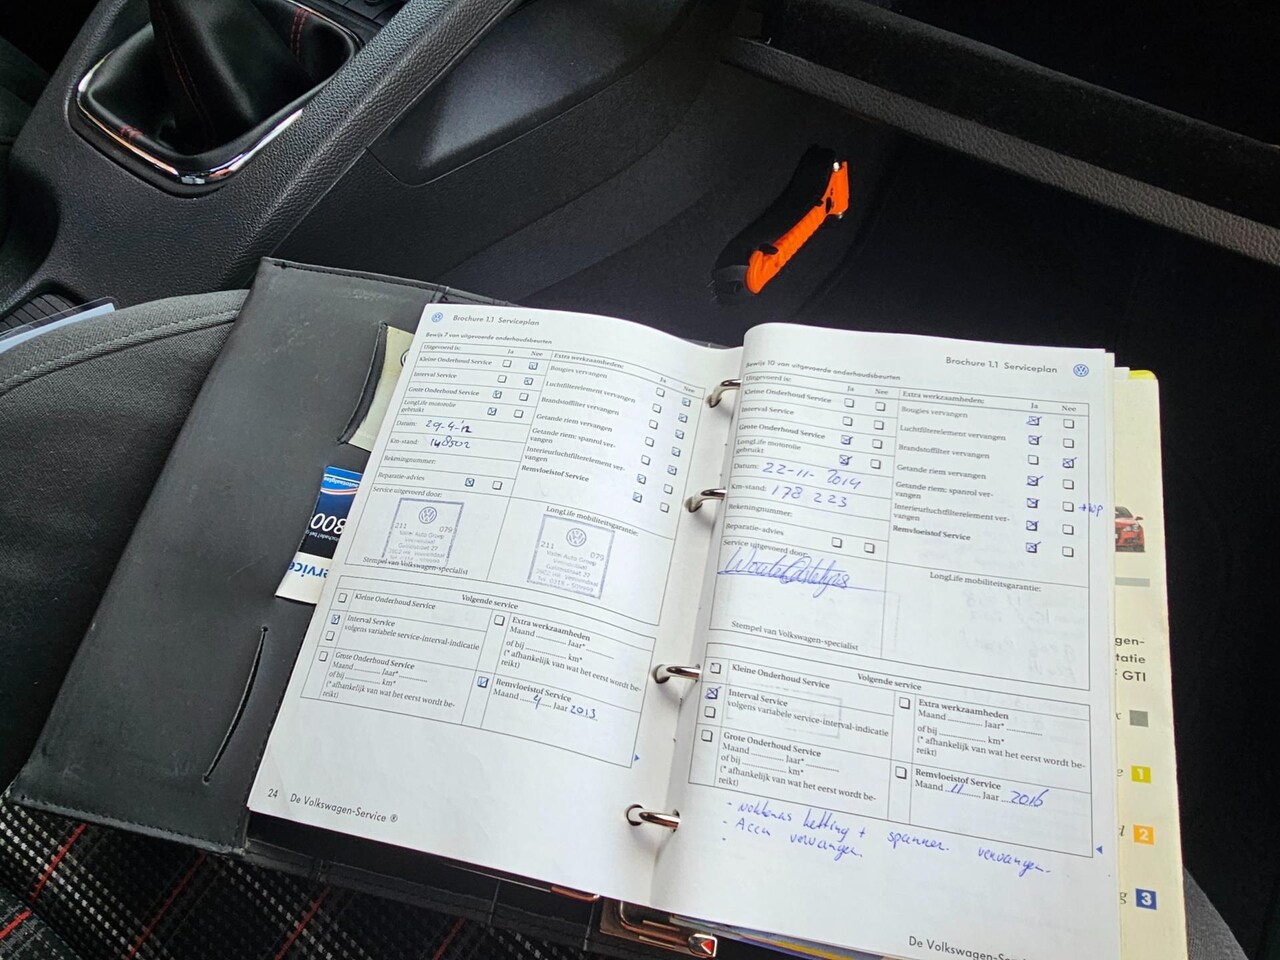 Brochure 1.1 Serviceplan
Bewijs 7 van uitgevoerde onderhoudsbeurten
Uitgevoerd is:
Ja
Nee
Kleine Onderhoud Service
Interval Service
Grote Onderhoud Service
LongLife motorolie
gebruikt
Datum:
Km-stand: 148502
Rekeningnummer:
Reparatie-advies
Service uitgevoerd door:
211 079
Vallei Auto Groep
Veenendaal
Stempel van Volkswagen-specialist
Extra werkzaamheden:
Ja
Nee
Bougies vervangen
Luchtfilterelement vervangen
Brandstoffilter vervangen
Getande riem vervangen
Getande riem: spanrol ver-
vangen
Interieurluchtfilterelement ver-
vangen
Remvloeistof Service
LongLife mobiliteitsgarantie:
211 079
Vallei Auto Groep
Veenendaal
Volgende service
Kleine Onderhoud Service
Interval Service
volgens variabele service-interval-indicatie
Grote Onderhoud Service
Maand Jaar*
of bij km*
(* afhankelijk van wat het eerst wordt be-
reikt)
Extra werkzaamheden
Maand Jaar*
of bij km*
(* afhankelijk van wat het eerst wordt be-
reikt)
Remvloeistof Service
Maand 4 Jaar 2013
24
De Volkswagen-Service ®
Brochure 1.1 Serviceplan
Bewijs 10 van uitgevoerde onderhoudsbeurten
Uitgevoerd is:
Ja
Nee
Kleine Onderhoud Service
Interval Service
Grote Onderhoud Service
LongLife motorolie
gebruikt
Datum: 22-11-2014
Km-stand: 178 223
Rekeningnummer:
Reparatie-advies
Service uitgevoerd door:
Stempel van Volkswagen-specialist
Extra werkzaamheden:
Ja
Nee
Bougies vervangen
Luchtfilterelement vervangen
Brandstoffilter vervangen
Getande riem vervangen
Getande riem: spanrol ver-
vangen
+WP
Interieurluchtfilterelement ver-
vangen
Remvloeistof Service
LongLife mobiliteitsgarantie:
Volgende service
Kleine Onderhoud Service
Interval Service
volgens variabele service-interval-indicatie
Grote Onderhoud Service
Maand Jaar*
of bij km*
(* afhankelijk van wat het eerst wordt be-
reikt)
Extra werkzaamheden
Maand Jaar*
of bij km*
(* afhankelijk van wat het eerst wordt be-
reikt)
Remvloeistof Service
Maand 11 Jaar 2016
- nokkenas ketting + spanner vervangen.
- Accu vervangen.
De Volkswagen-Ser
gen-
tatie
GTI
1
2
3